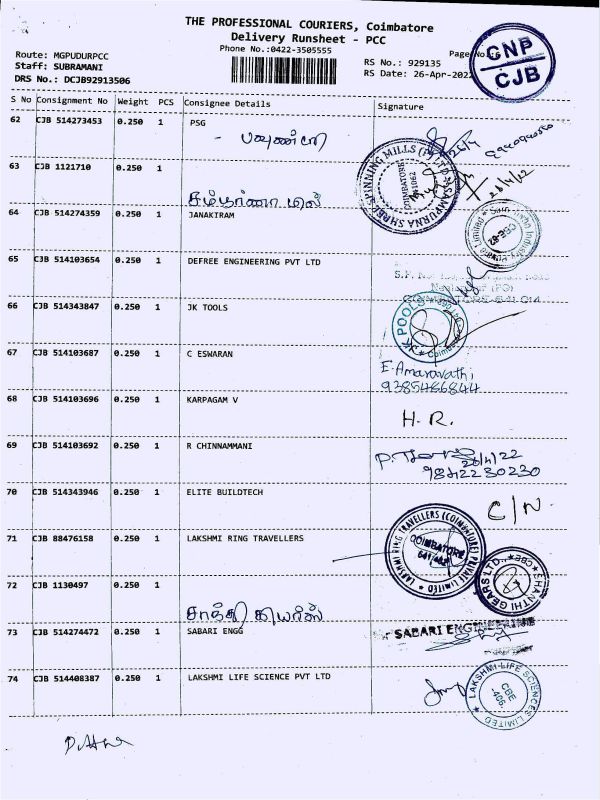 THE PROFESSIONAL COURIERS, Coimbatore
Delivery Runsheet - PCC
Phone No.:0422-3505555
CNP
CJB
Route: MGPUDURPCC
Staff: SUBRAMANI
DRS No.: DCJB92913506
RS No.: 929135
RS Date: 26-Apr-2022
S No Consignment No Weight PCS Consignee Details Signature
62 CJB 514273453 0.250 1 PSG
63 CJB 1121710 0.250 1
26/4/22
64 CJB 514274359 0.250 1 JANAKIRAM
65 CJB 514103654 0.250 1 DEFREE ENGINEERING PVT LTD
66 CJB 514343847 0.250 1 JK TOOLS
67 CJB 514103687 0.250 1 C ESWARAN
E. Amaravathi
9385486844
68 CJB 514103696 0.250 1 KARPAGAM V
H.R.
69 CJB 514103692 0.250 1 R CHINNAMMANI
26/4/22
9842230230
70 CJB 514343946 0.250 1 ELITE BUILDTECH
C/N
71 CJB 88476158 0.250 1 LAKSHMI RING TRAVELLERS
LAKSHMI RING TRAVELLERS (COIMBATORE) PRIVATE LIMITED
COIMBATORE
SHANTHI GEARS LTD., CBE
72 CJB 1130497 0.250 1
சாந்தி கியர்ஸ்
73 CJB 514274472 0.250 1 SABARI ENGG
SABARI ENGINEERING
74 CJB 514408387 0.250 1 LAKSHMI LIFE SCIENCE PVT LTD
LAKSHMI-LIFE SCIENCES LIMITED
CBE